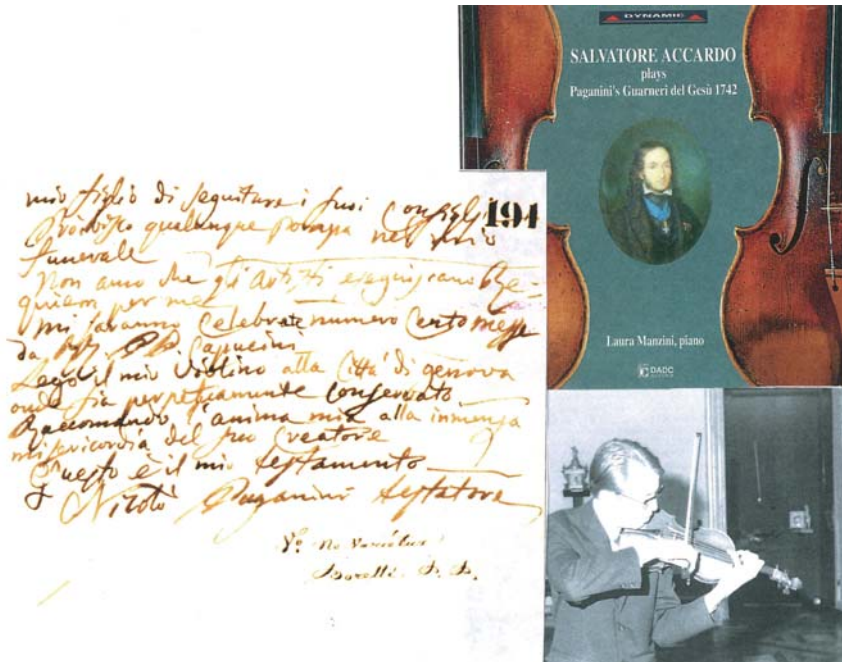 DYNAMIC
SALVATORE ACCARDO
plays
Paganini's Guarneri del Gesù 1742
Laura Manzini, piano
DADC
194
mio figlio di seguitare i suoi Consigli
Proibisco qualunque pompa nel mio
funerale
Non amo che gli artisti eseguiscano Re-
quiem per me
mi saranno Celebrate numero Cento messe
da Capucini
Lego il mio Violino alla Città di genova
onde sia perpetuamente conservato
Raccomando l'anima mia alla immensa
misericordia del suo Creatore
Questo è il mio testamento
Nicolò Paganini testatore